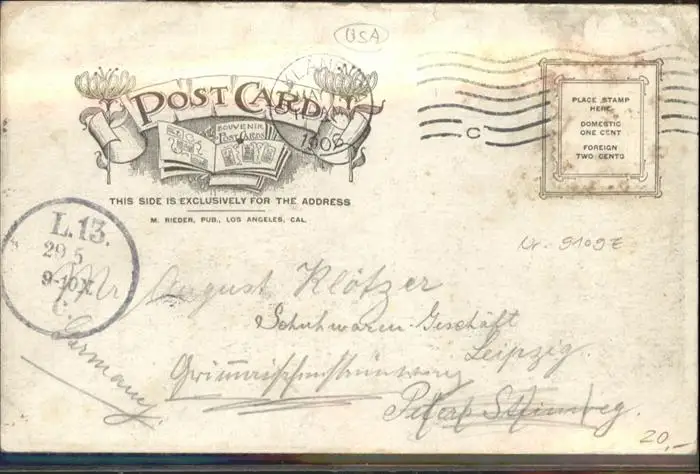 USA
POST CARD
SOUVENIR
POST CARDS
1906
C
PLACE STAMP
HERE
DOMESTIC
ONE CENT
FOREIGN
TWO CENTS
THIS SIDE IS EXCLUSIVELY FOR THE ADDRESS
M. RIEDER, PUB., LOS ANGELES, CAL.
L. 13.
29 5
9-10 X
C.
Nr. 9109E
Mr August Klötzer
Schuhwaren-Geschäft
Leipzig.
Germany.
20,-